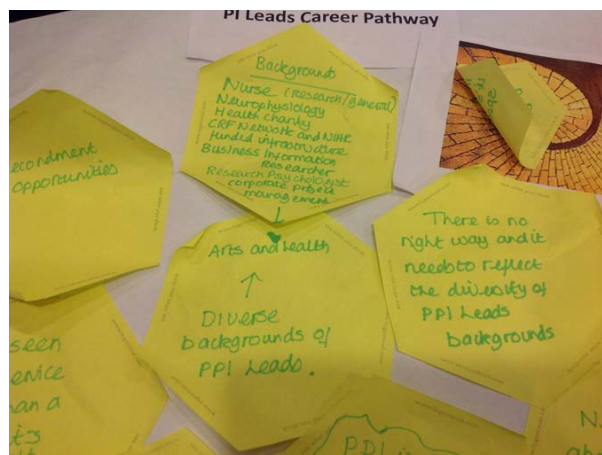 PI Leads Career Pathway
Backgrounds
Nurse (Research/general)
Neurophysiology
Health charity
CRF Network and NIHR
funded infrastructure
Business Information
Researcher
Research Psychologist
corporate project
management
econdment
opportunities
Arts and Health
Diverse
backgrounds of
PPI Leads.
There is no
right way and it
needs to reflect
the diversity of
PPI Leads
backgrounds
seen
an a
PPI
N